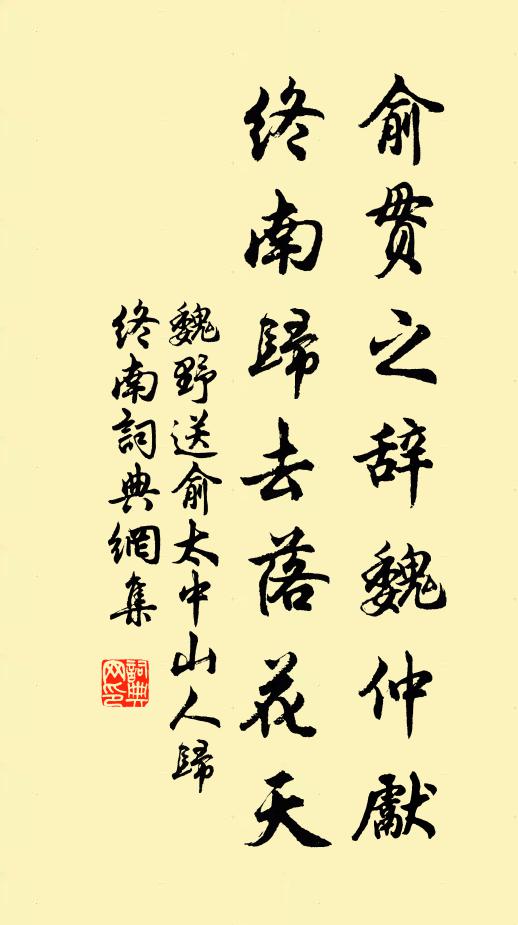 俞贯之辞魏仲獻
终南歸去落花天
魏野送俞太中山人歸
终南詞典網集
詞典
网印